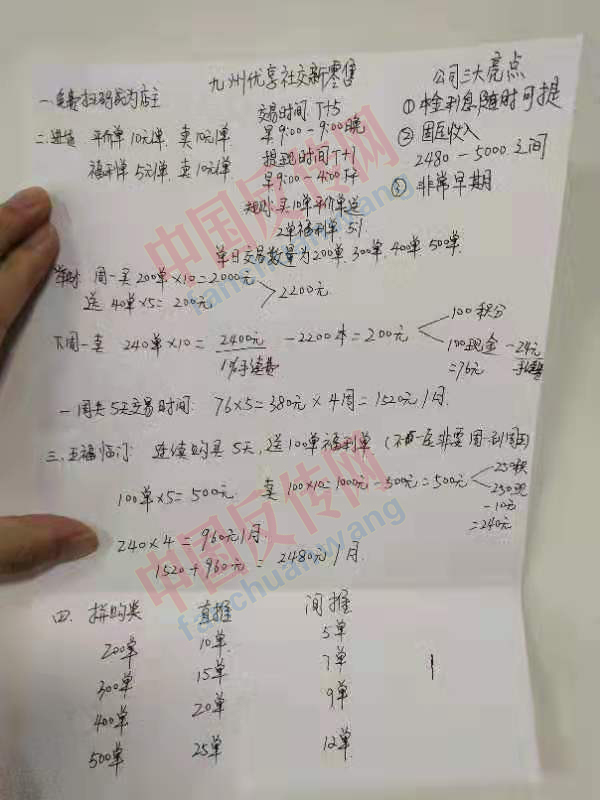 九州优享社交新零售
公司三大亮点
一免费扫码成为店主
交易时间 T+5
早9:00-9:00晚
提现时间T+1
早9:00-4:00下午
① 本金利息随时可提
② 固定收入
2480-5000之间
③ 非常早期
平价单10元/单 卖10元/单
福利单5元/单 卖10元/单
规则:买10单平价单送
2单福利单 5:1
单日交易数量为200单.300单.400单.500单
周一买200单×10=2000元
送 40单×5=200元
2200元
下周一卖 240单×10=2400元-2200本=200元
1%手续费
100积分
100现金-24元
手续费
=76元
一周共5天交易时间: 76×5=380元×4周=1520元/月.
三、五福临门: 连续购买5天,送100单福利单
100单×5=500元 卖100×10=1000元-500元=500元
250积
250现
-10元
=240元
240×4=960元/月.
1520+960元=2480元/月.
四、拼购类 直推 间推
200单 10单 5单
300单 15单 7单
400单 20单 9单
500单 25单 12单
中国反传网
fanchuanwang
中国反传网
fanchuanwang